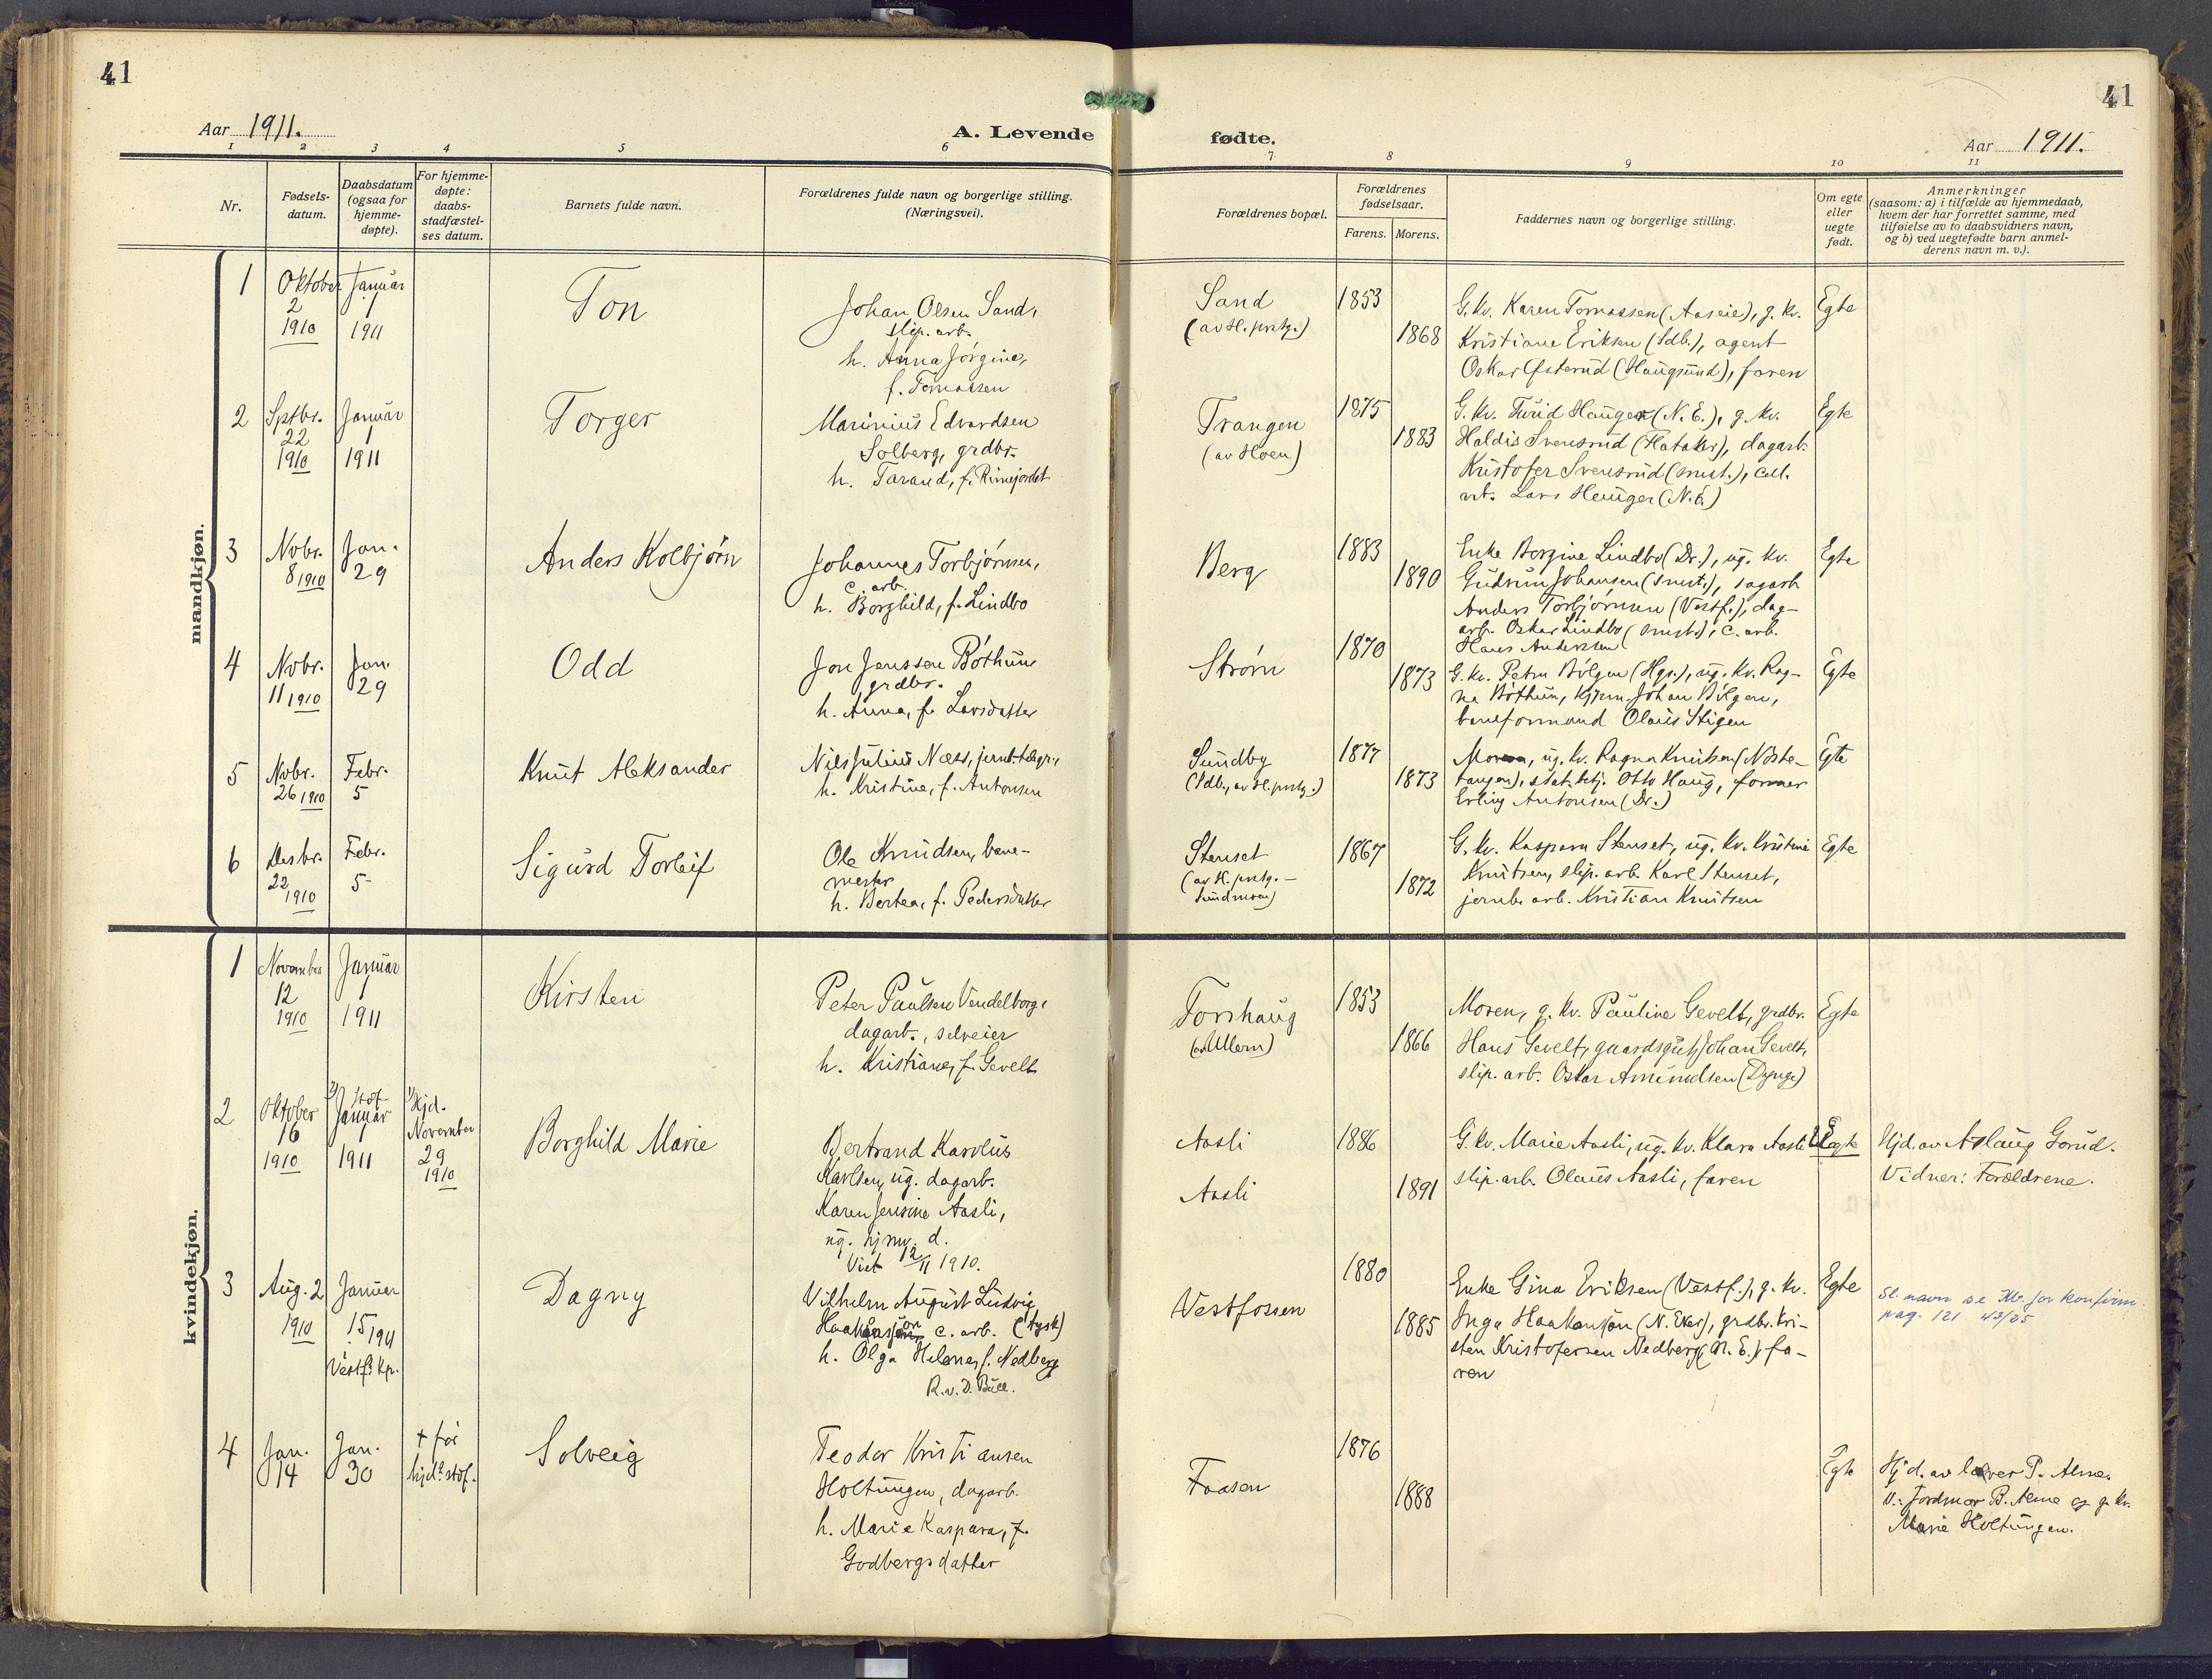 41
41
Aar 1911.
A. Levende
fødte.
Aar 1911.
1
2
3
4
5
6
7
8
9
10
11
Nr.
Fødsels-
datum.
Daabsdatum
(ogsaa for
hjemme-
døpte).
For hjemme-
døpte:
daabs-
stadfæstel-
ses datum.
Barnets fulde navn.
Forældrenes fulde navn og borgerlige stilling.
(Næringsvei).
Forældrenes bopæl.
Forældrenes
fødselsaar.
Farens.
Morens.
Faddernes navn og borgerlige stilling.
Om egte
eller
uegte
født.
Anmerkninger
(saasom: a) i tilfælde av hjemmedaab,
hvem der har forrettet samme, med
tilføielse av to daabsvidners navn,
og b) ved uegtefødte barn anmel-
derens navn m. v.).
mandkjøn.
1
Oktober
2
1910
Januar
1
1911
Ton
Johan Olsen Sand,
slip. arb.
h. Anna Jørgine,
f. Tomassen
Sand
(av H. prstg.)
1853
1868
G. kv. Karen Tomassen (Aaseie), g. kv.
Kristiane Eriksen (Sdb.), agent
Oskar Østerud (Haugsund), faren
Egte
2
Sptbr.
22
1910
Januar
1
1911
Torger
Marinius Edvardsen
Solberg, grdbr.
h. Tarand, f. Rimejordet
Trangen
(av Hoen)
1875
1883
G. kv. Turid Hauger (N. E.), g. kv.
Haldis Svensrud (Flataker), dagarb.
Kristofer Svensrud (smst.), cell.
arb. Lars Hauger (N. E.)
Egte
3
Nvbr.
8 1910
Jan.
29
Anders Kolbjørn
Johannes Torbjørnsen,
c. arb.
h. Borghild, f. Lindbo
Berg
1883
1890
Enke Borgine Lindbo (Dr.), ug. kv.
Gudrun Johansen (smst.), dagarb.
Anders Torbjørnsen (Vestf.), dag-
arb. Oskar Lindbo (smst.), c. arb.
Hans Andersen
Egte
4
Nvbr.
11 1910
Jan.
29
Odd
Jon Jenssen Bøthun
grdbr.
h. Anna, f. Larsdatter
Strøm
1870
1873
G. kv. Petra Bølgen (Hgs.), ug. kv. Rag-
na Bøthun, kjrm. Johan Bølgen,
baneformand Olaus Stigen
Egte
5
Nvbr.
26 1910
Febr.
5
Knut Aleksander
Nils Julius Næss, jernb. telegr.,
h. Kristine, f. Antonsen
Sundby
(Sdb., av H. prstg.)
1877
1873
Moren, ug. kv. Ragna Knutsen (Noste-
tangen), stat. btj. Otto Haug, former
Erling Antonsen (Dr.)
Egte
6
Desbr.
22
1910
Febr.
5
Sigurd Torleif
Ole Knudsen, bane-
mester
h. Bertea, f. Pedersdatter
Stenset
(av H. prstg. -
Sundmoen)
1867
1872
G. kv. Kaspara Stenset, ug. kv. Kristine
Knutsen, slip. arb. Karl Stenset,
jernb. arb. Kristian Knutsen
Egte
kvindekjøn.
1
November
12
1910
Januar
1
1911
Kirsten
Peter Paulsen Vendelborg,
dagarb., selveier
h. Kristiane, f. Gevelt
Torshaug
(av Ulern)
1853
1866
Moren, g. kv. Pauline Gevelt, grdbr.
Hans Gevelt, gaardsgut Johan Gevelt,
slip. arb. Oskar Amundsen (Dynge)
Egte
2
Oktober
16
1910
2) Stof.
Januar
1
1911
1) Hjd.
November
29
1910
Borghild Marie
Bertrand Karolus
Karlsen, ug. dagarb.
Karen Jensine Aasli,
ug. hjmv. d.
Viet 12/11 1910.
Aasli
Aasli
1886
1891
G. kv. Marie Aasli, ug. kv. Klara Aasli
slip. arb. Olaus Aasli, faren
Uegte
Hjd. av Aslaug Gorud.
Vidner: Forældrene.
3
Aug. 2
1910
Januar
15 1911
Vestfs. kp.
Dagny
Vilhelm August Ludvig
Haakanson, c. arb. (tysk)
h. Olga Helene, f. Nedberg
R. v. D. Bull.
Vestfossen
1880
1885
Enke Gina Eriksen (Vestf.), g. kv.
Inga Haakanson (N. Eker), grdbr. Kri-
sten Kristofersen Nedberg (N. E.), fa-
ren
Egte
Sl. navn se Kb. for konfirm.
pag. 121 43/25
4
Jan.
14
Jan.
30
+ før
hjd.s stof.
Solveig
Teodor Kristiansen
Holtungen, dagarb.
h. Marie Kaspara, f.
Godbergsdatter
Faasen
1876
1888
Egte
Hjd. av lærer P. Alme.
V.: Jordmor B. Alme og g. kv.
Marie Holtungen.